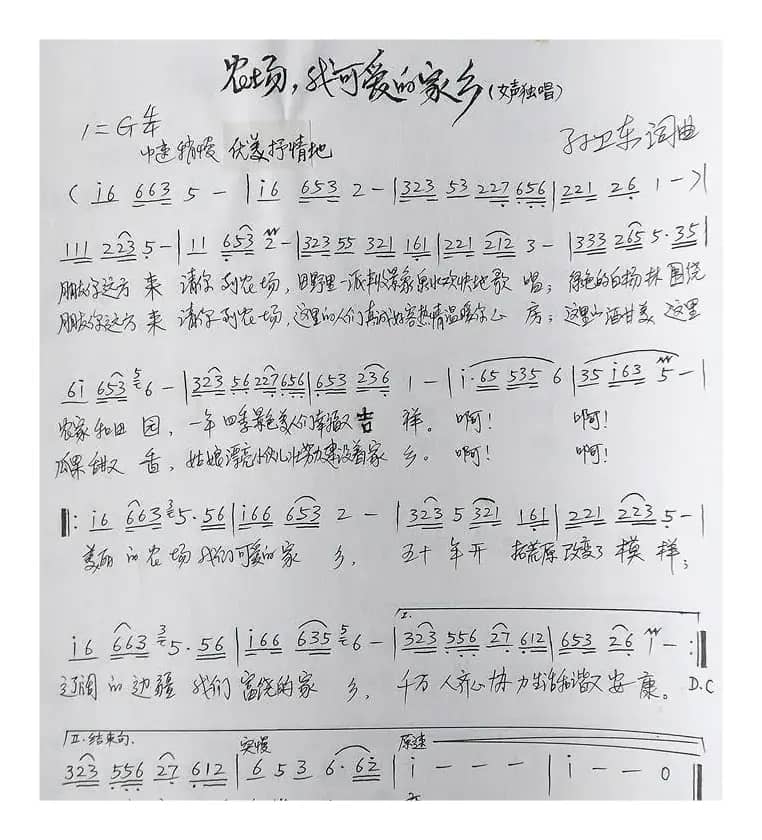 农场，我可爱的家乡（女声独唱）
1=G 4/4
中速稍慢 优美抒情地
孙卫东 词曲
( i6 663 5 - | i6 653 2 - | 323 53 227 656 | 221 26 1 - ) |
111 223 5 - | 11 653 2 - | 323 55 321 161 | 221 212 3 - | 333 265 5·35 |
朋友你远方 来 请你到农场，田野里一派丰收景象 渔水欢快地歌 唱；绿色的白杨林围绕
朋友你远方 来 请你到农场，这里的人们真诚好客热情温暖你心 房；这里山酒甘美 这里
6i 653 5 6 - | 323 56 227 656 | 653 236 1 - | i·65 535 6 | 35 i63 5 - |
农家和田 园，一年四季景色美人们幸福又 吉 祥。啊！ 啊！
瓜果甜又 香，姑娘漂亮小伙儿壮努力建设着家 乡。啊！ 啊！
‖: i6 663 3 5·56 | i66 653 2 - | 323 5 321 161 | 221 223 5 - |
美丽的农场我们可爱的家 乡，五十年开 拓荒原改变了模样；
i6 663 3 5·56 | i66 635 5 6 - | 1. 323 556 27 612 | 653 26 i - :‖
辽阔的边疆 我们富饶的家 乡，千万人齐心协力生活和谐又安康。D.C
II.结束句. 突慢 原速
323 556 27 612 | 6 5 3 6·62 | i - - - | i - - 0 ‖